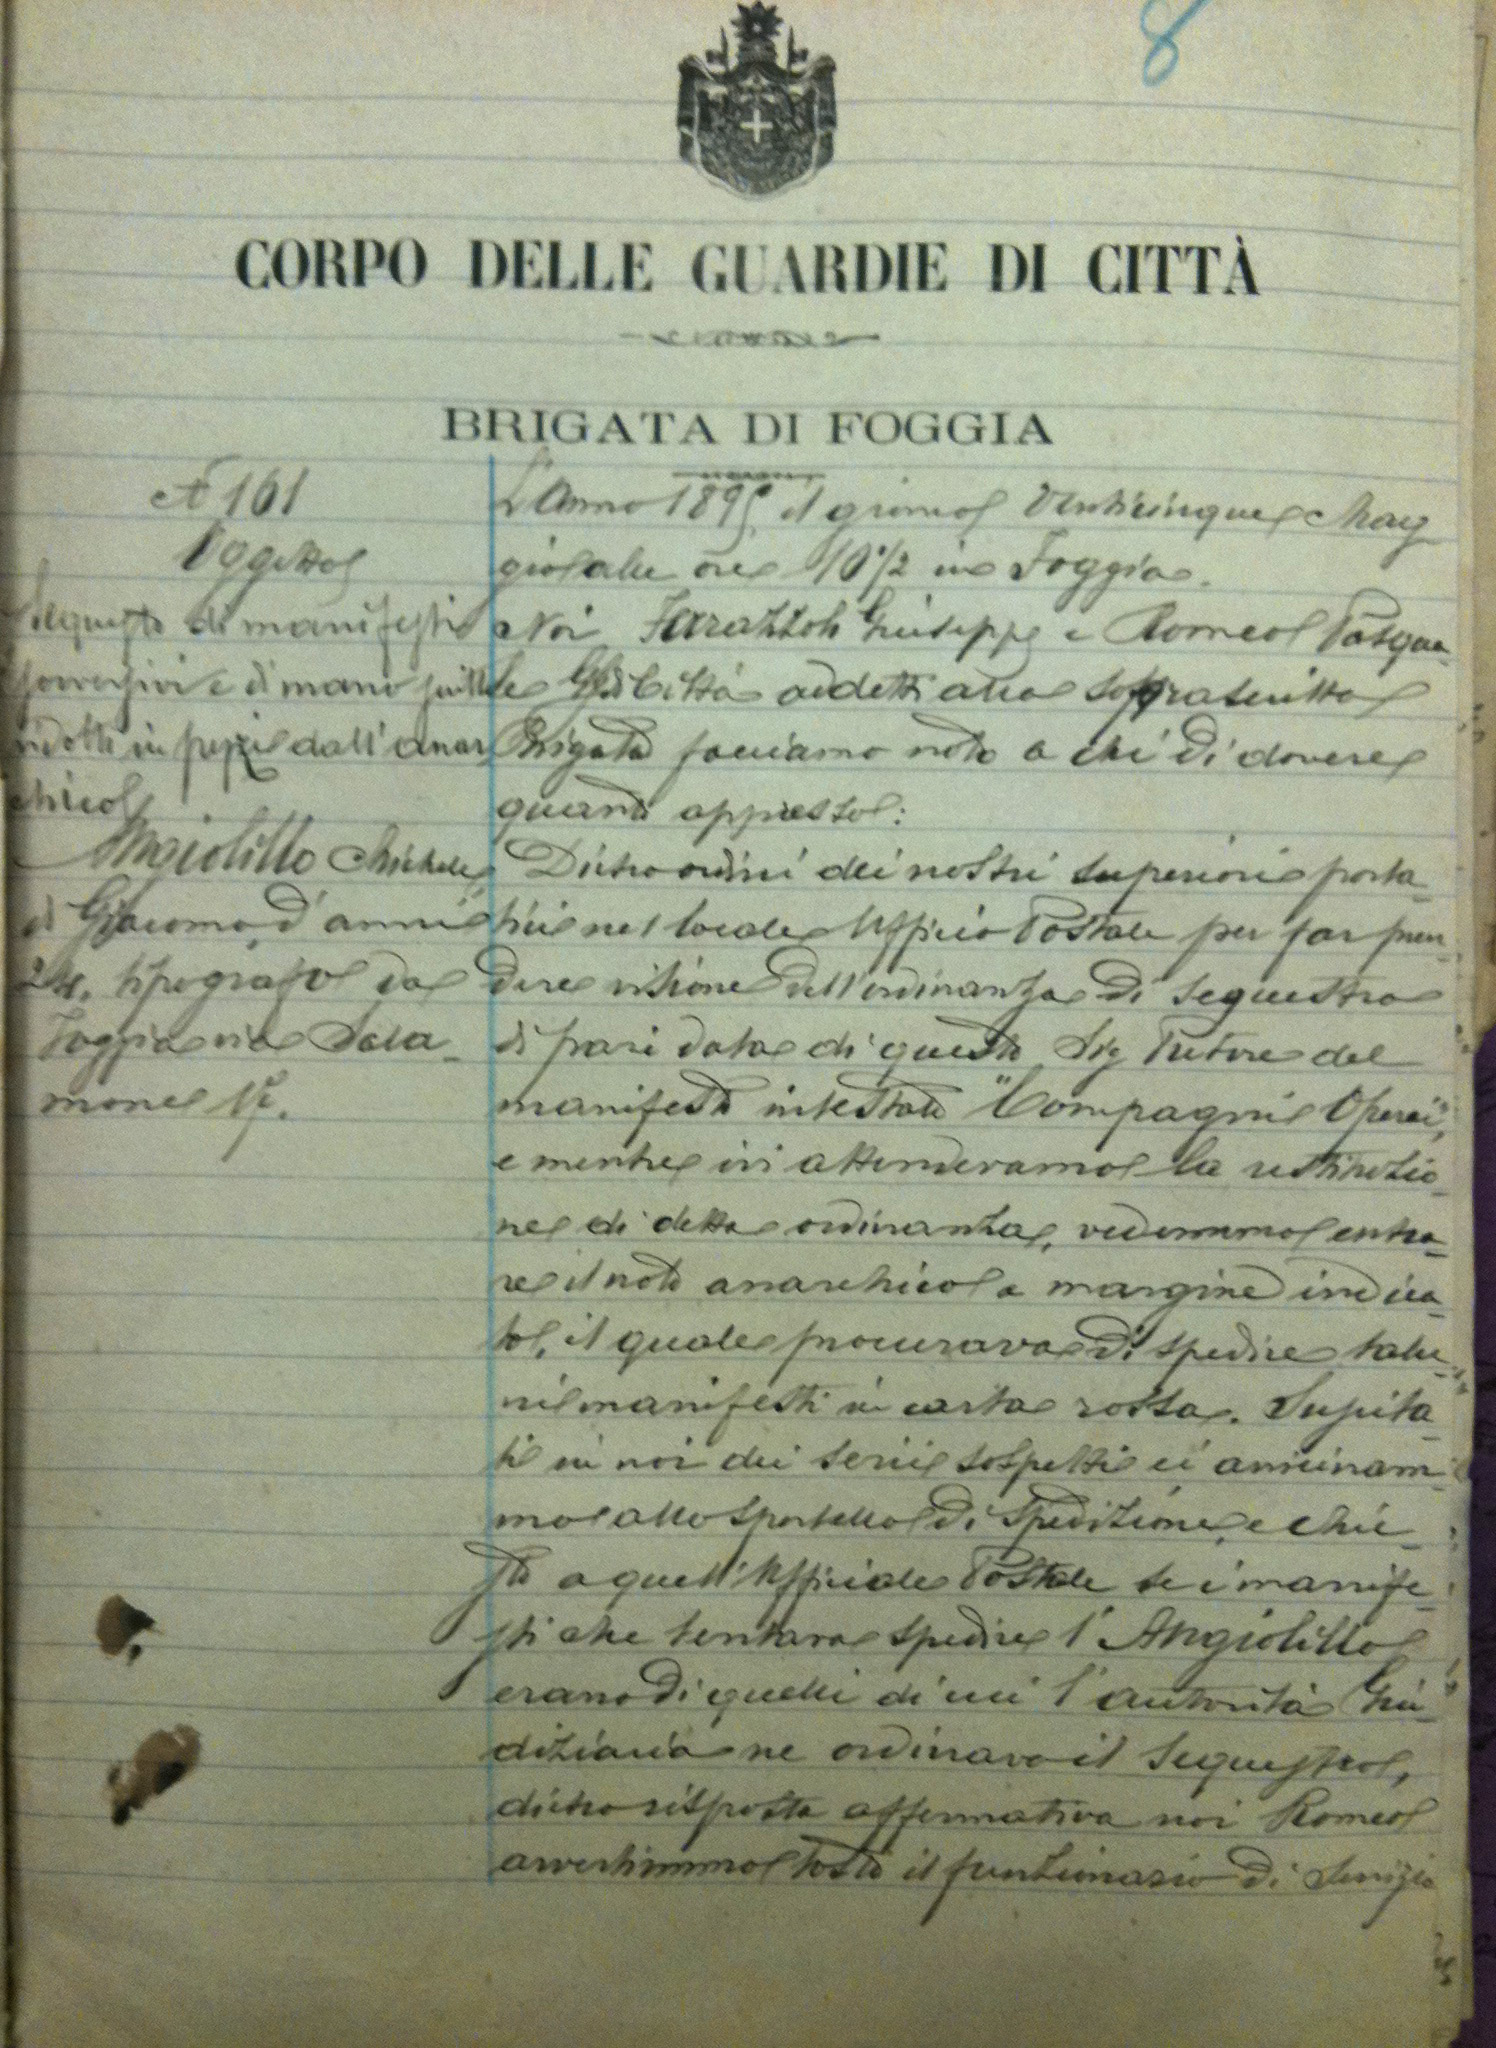 8
CORPO DELLE GUARDIE DI CITTÀ
BRIGATA DI FOGGIA
N 161
Oggetto
Sequestro di manifesti
sovversivi e di mano scritti
ridotti in pezzi dall'anar
chico
Angiolillo Michele
di Giacomo, d'anni
24, tipografo da
Foggia via Sala-
mone
L'Anno 1895 il giorno Venticinque Mag
gio alle ore 10 1/2 in Foggia.
Noi Giuseppe e Romeo Pasqua-
le G. di Città addetti alla soprascritta
Brigata facciamo noto a chi di dovere
quanto appresso:
Dietro ordini dei nostri superiori porta-
tici nel locale Ufficio Postale per far pren-
dere visione dell'ordinanza di sequestro
di pari data di questo Sig Pretore del
manifesto intestato "Compagni Operai",
e mentre ivi attendevamo la restituzio-
ne di detta ordinanza, vedemmo entra-
re il noto anarchico a margine indica-
to, il quale procurava di spedire talu-
ni manifesti in carta rossa. Suscita-
ti in noi dei serii sospetti ci avvicinam-
mo allo sportello di spedizione, e chie-
sto a quell'Ufficiale Postale se i manife-
sti che tentava spedire l'Angiolillo
erano di quelli di cui l'autorità Giu-
diziaria ne ordinava il sequestro,
dietro risposta affermativa noi Romeo
avvertimmo tosto il funzionario di servizio